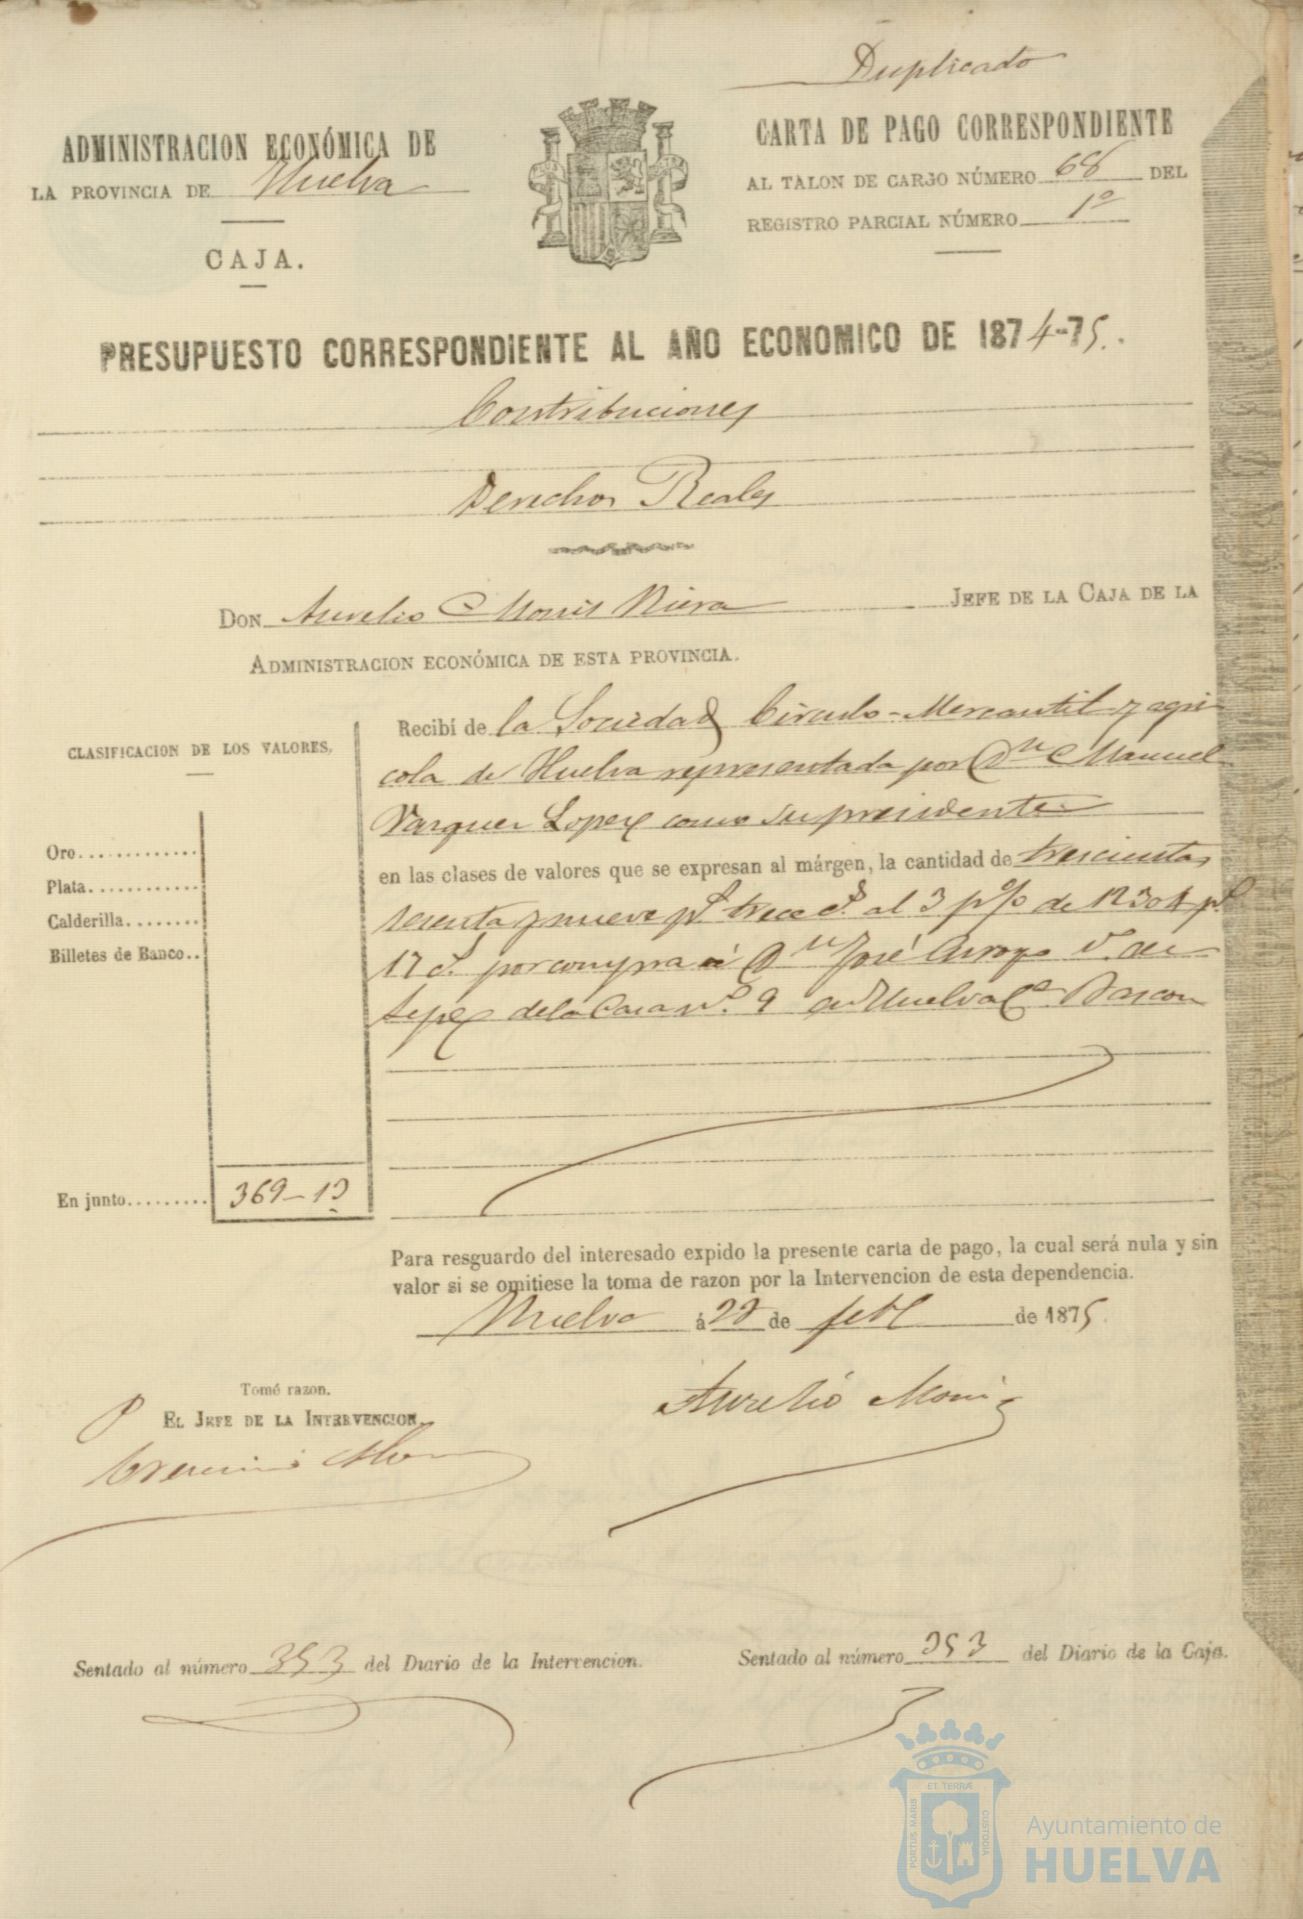 Duplicado
ADMINISTRACION ECONÓMICA DE
LA PROVINCIA DE Huelva
CAJA.
CARTA DE PAGO CORRESPONDIENTE
AL TALON DE CARGO NÚMERO 68 DEL
REGISTRO PARCIAL NÚMERO 1º
PRESUPUESTO CORRESPONDIENTE AL AÑO ECONOMICO DE 1874-75.
Contribuciones
Derechos Reales
DON Aurelio Monis Riera JEFE DE LA CAJA DE LA
ADMINISTRACION ECONÓMICA DE ESTA PROVINCIA.
CLASIFICACION DE LOS VALORES.
Oro
Plata
Calderilla
Billetes de Banco
En junto 369-13
Recibí de la Sociedad Circulo-Mercantil y agri
cola de Huelva representada por Dn Manuel
Vazquez Lopez como su presidente
en las clases de valores que se expresan al márgen, la cantidad de trescientas
sesenta y nueve ps. trece cs. al 3 p% de 12304 ps.
17 cs. por compra á Dn José Arroyo v. de
Lepe de la Casa nº. 9 en Huelva Ce.
Para resguardo del interesado expido la presente carta de pago, la cual será nula y sin
valor si se omitiese la toma de razon por la Intervencion de esta dependencia.
Huelva á 22 de feb de 1875.
Tomé razon.
P EL JEFE DE LA INTERVENCION,
Aurelio Monis
Sentado al número 353 del Diario de la Intervencion.
Sentado al número 353 del Diario de la Caja.
ET TERRÆ
PORTUS MARIS
CUSTODIA
Ayuntamiento de
HUELVA